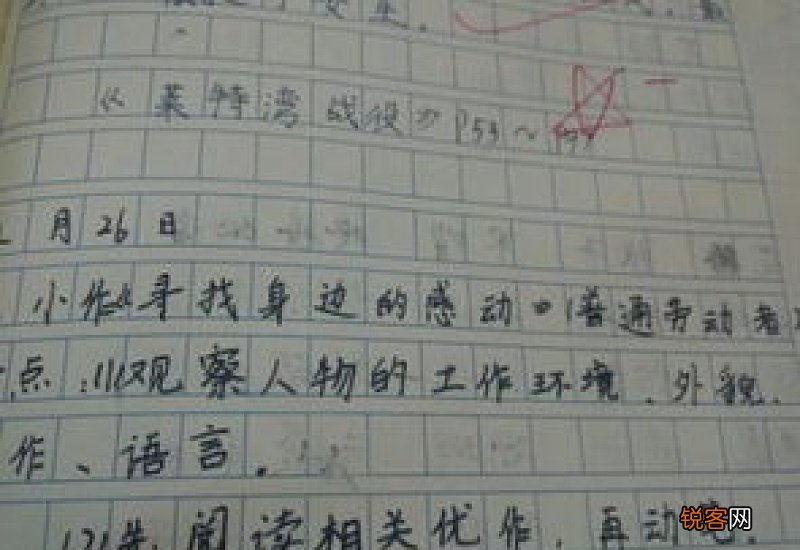 《莱特湾战役》P53~P59
月26日
小作《寻找身边的感动》(普通劳动者
点:(1)观察人物的工作环境、外貌、
作、语言。
(2)先阅读相关优作,再动笔。
锐客网